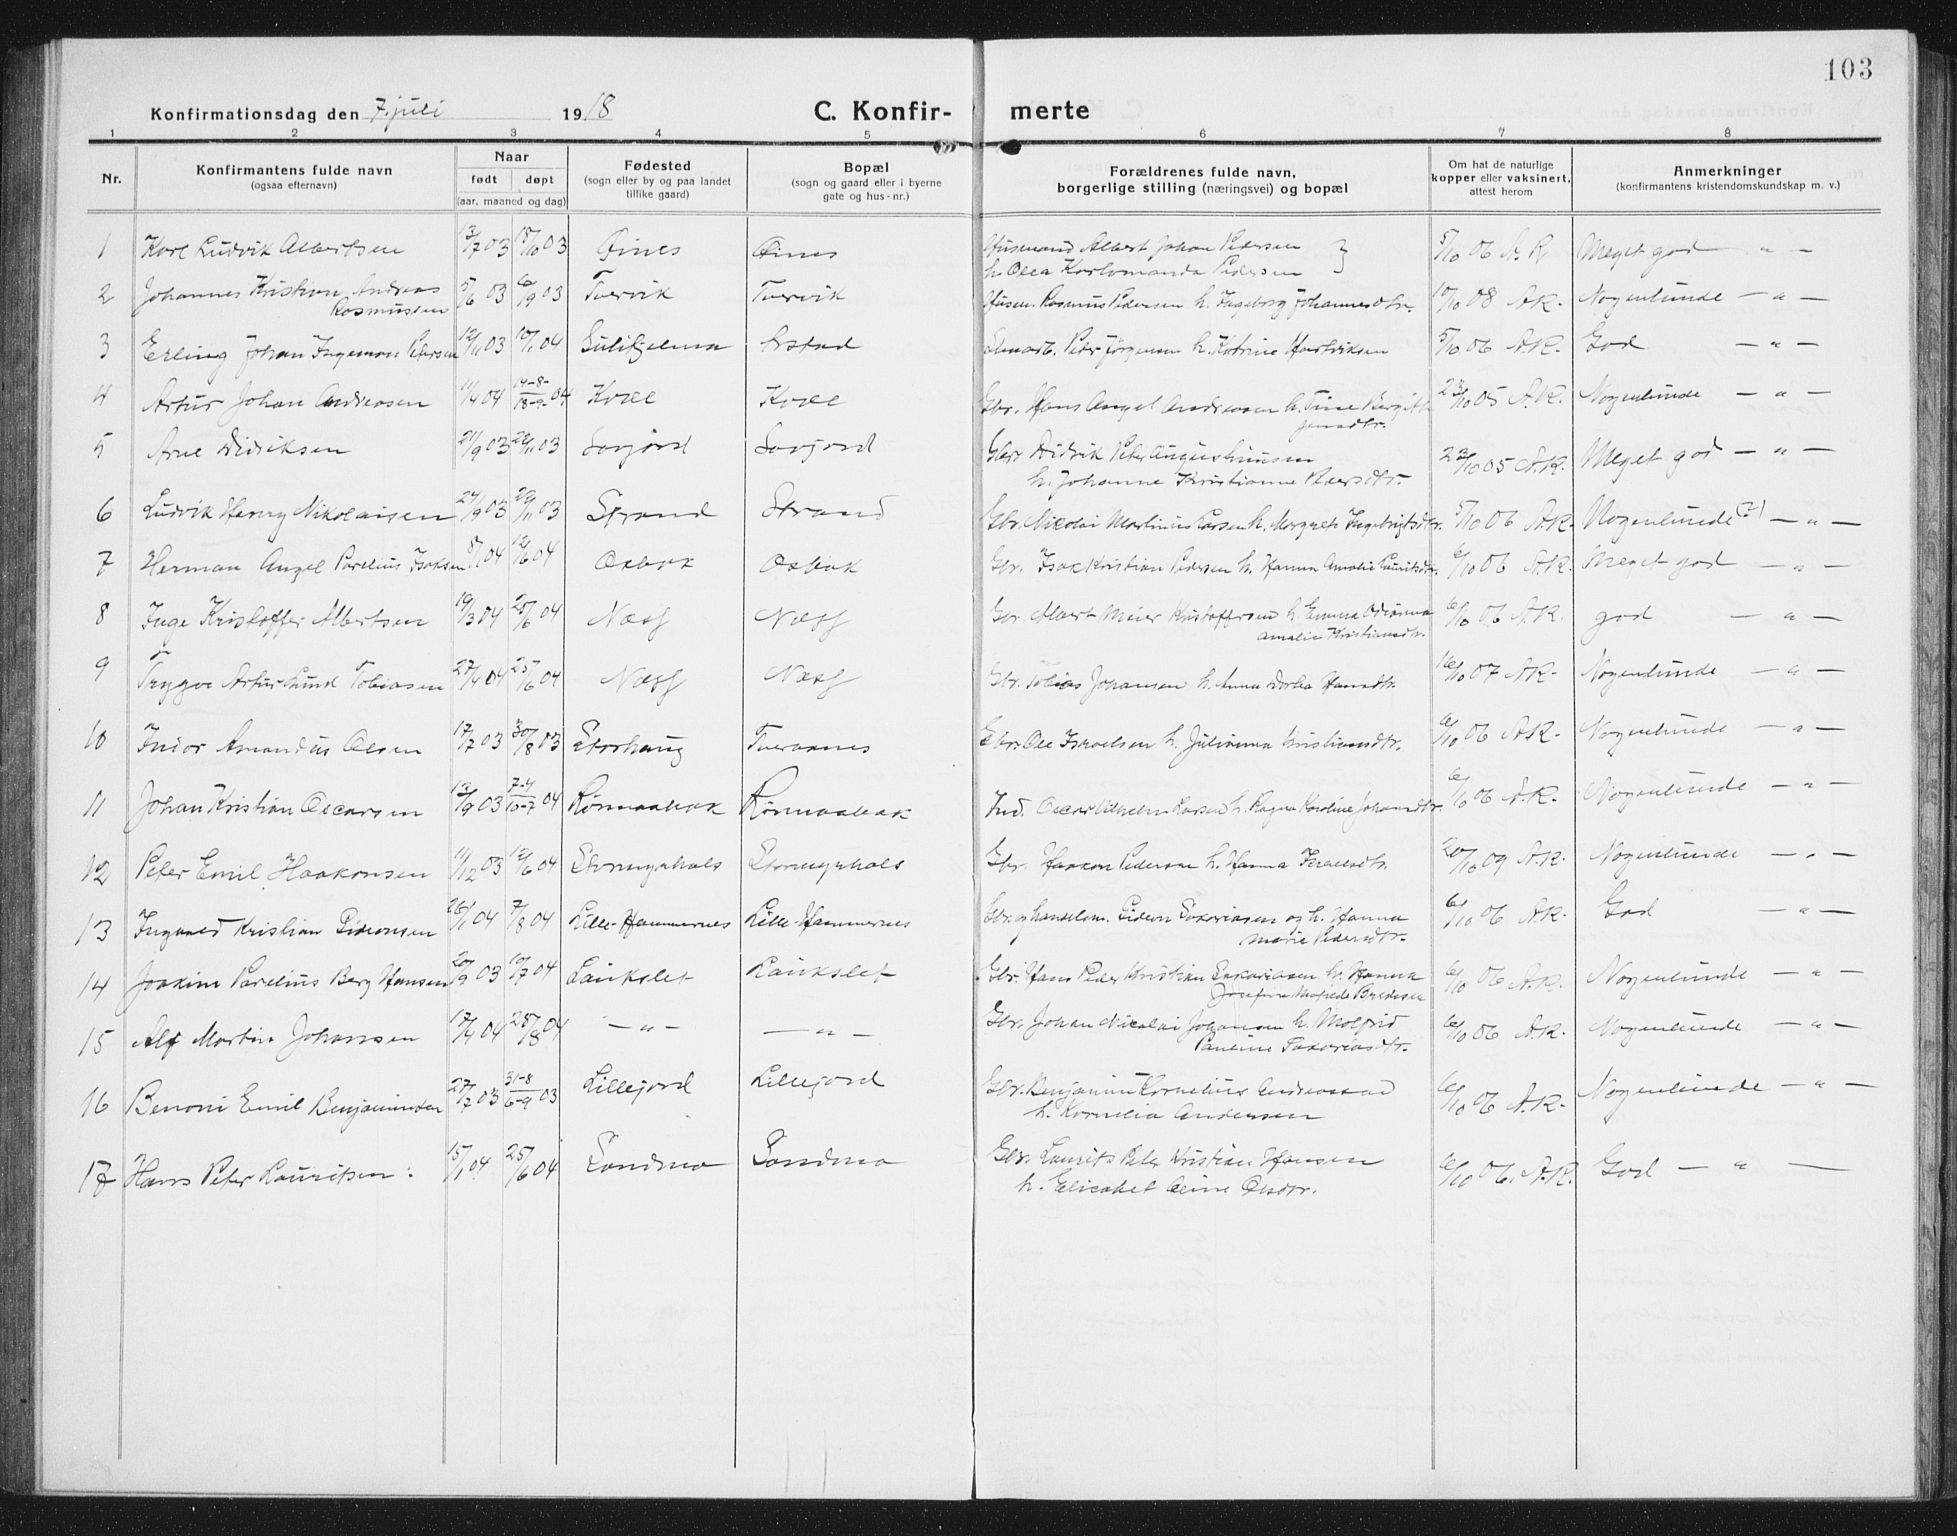 103
Konfirmationsdag den 7. juli 1918 C. Konfir- merte
1 2 3 4 5 6 7 8
Nr. Konfirmantens fulde navn (ogsaa efternavn) Naar født døpt (aar, maaned og dag) Fødested (sogn eller by og paa landet tillike gaard) Bopæl (sogn og gaard eller i byerne gate og hus-nr.) Forældrenes fulde navn, borgerlige stilling (næringsvei) og bopæl Om hat de naturlige kopper eller vaksinert, attest herom Anmerkninger (konfirmantens kristendomskundskap m. v.)
1 Karl Ludvik Albertsen 13/7 03 18/10 03 Øines Øines Husmand Albert Johan Pedersen 5/10 06 A.K. Meget god — " —
h. Olea Pedersen
2 Johannes Kristian Andreas 5/6 03 6/9 03 Tvervik Tvervik Husm. Rasmus Pedersen h. Ingeborg Johannesdtr. 10/10 08 A.K. Nogenlunde — " —
Rasmussen
3 Erling Johan Ingeman Petersen 12/11 03 10/1 04 Sulitjelma Peder Jørgensen h. Katrine Hartviksen 5/10 06 A.K. God — " —
4 Artur Johan Andreasen 11/4 04 14-8- 18-9- 04 Kvæl Kvæl Gbr. Hans Angel Andreasen h. Tine Bergitte 23/10 05 A.K. Nogenlunde — " —
Jensdtr.
5 Arne Didriksen 21/9 03 22/11 03 Sørfjord Gbr. Didrik Peter Augustinusen 23/10 05 A.K. Meget god — " —
h. Johanne Kristianne Pedersdtr.
6 Ludvik Henry Nikolaisen 27/9 03 22/11 03 Strand Strand Gbr. Nicolai Martinus Larsen h. Margrete Ingebrigtsdtr. 5/10 06 A.K. Nogenlunde (?) — " —
7 Herman Angel Parelius Isaksen 8/1 04 12/6 04 Osbak Osbak Gbr. Isak Kristian Pedersen h. Hanna Amalie Lauritsdtr. 6/10 06 A.K. Meget god — " —
8 Inge Kristoffer Albertsen 19/3 04 25/6 04 Næss Næss Gbr. Albert Meier Kristoffersen h. Emma 6/10 06 A.K. god — " —
Amalie Kristiansdtr.
9 Trygve Artur Lund Tobiasen 27/4 04 25/6 04 Næss Næss Gbr. Tobias Johansen h. Anna Dortea Hansdtr. 16/10 07 A.K. Nogenlunde — " —
10 Indor Amandus Olsen 17/7 03 30/8 03 Storhaug Tveraanes Gbr. Ole Israelsen h. Julianna Kristiansdtr. 6/10 06 A.K. Nogenlunde — " —
11 Johan Kristian Oscarsen 13/9 03 7-4 10-7 04 Rørmaabak Rørmaabak Ind. Oscar Vilhelm Larsen h. Ragna Karoline Johansdtr. 6/10 06 A.K. Nogenlunde — " —
12 Peter Emil Haakonsen 11/12 03 12/6 04 Stormyrhals Stormyrhals Gbr. Haakon Pedersen h. Hanna Israelsdtr. 20/10 09 A.K. Nogenlunde — " —
13 Ingvald Kristian Gideonsen 26/1 04 7/8 04 Lille-Hammernes Lille-Hammernes Gbr. og handelsm. Gideon Sakariasen og h. Hanna 6/10 06 A.K. God — " —
Marie Pedersdtr.
14 Joakim Parelius Berg Hansen 20/9 03 10/7 04 Laukslet Laukslet Gbr. Hans Peder Kristian Sakariasen h. Hanna 6/10 06 A.K. Nogenlunde — " —
Josefine Bredesen
15 Alf Martin Johansen 17/4 04 28/8 04 — " — — " — Gbr. Johan Nicolai Johansen h. Molfrid 6/10 06 A.K. Nogenlunde — " —
Pauline Sakariasdtr.
16 Benoni Emil Benjaminsen 27/7 03 31-8 6-9 03 Lillejord Lillejord Gbr. Benjamin Kornelius Andreassen 6/10 06 A.K. Nogenlunde — " —
h. Kornelia Andersen
17 Hans Peter Lauritsen: 15/1 04 25/6 04 Sandmo Sandmo Gbr. Laurits Peter Kristian Hansen 6/10 06. A.K. God — " —
h. Elisabet Oline Olsdtr.